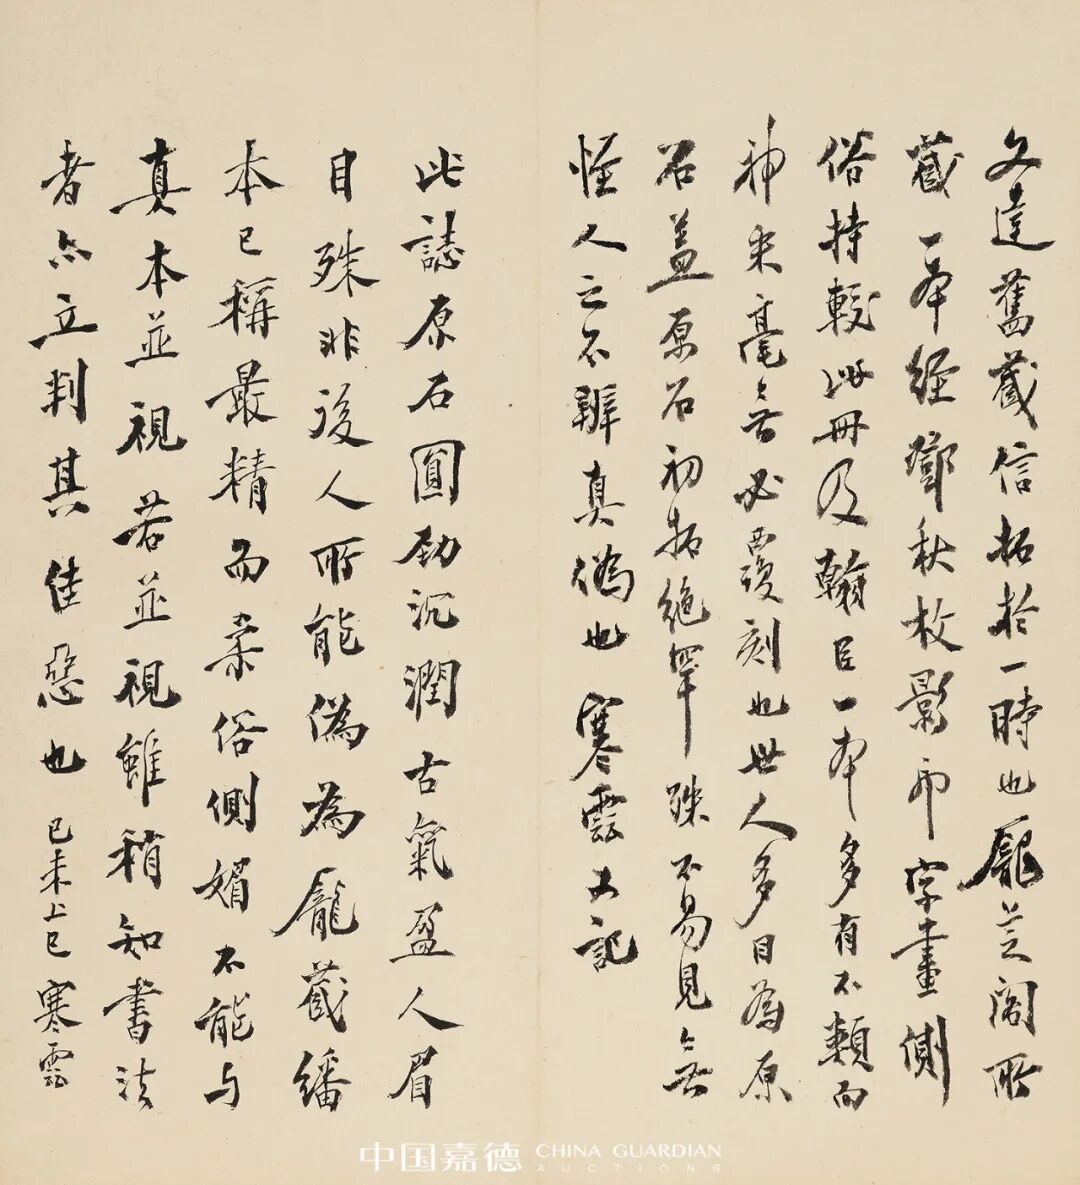 文達舊藏信拓於一時也龐芝閣所
藏一本經鄧秋枚影印字畫側
俗持較此冊及翰臣一本多有不類而
神采毫無必覆刻也世人多目為原
石蓋原石初拓絕罕殊不易見無
怪人之不辨真偽也 寒雲又記
此誌原石圓勁沉潤古氣盈人眉
目殊非後人所能偽為龐藏繙
本已稱最精而柔俗側媚不能與
真本並視若並視雖稍知書法
者亦立判其佳惡也 己未上巳寒雲
中国嘉德 CHINA GUARDIAN
AUCTIONS